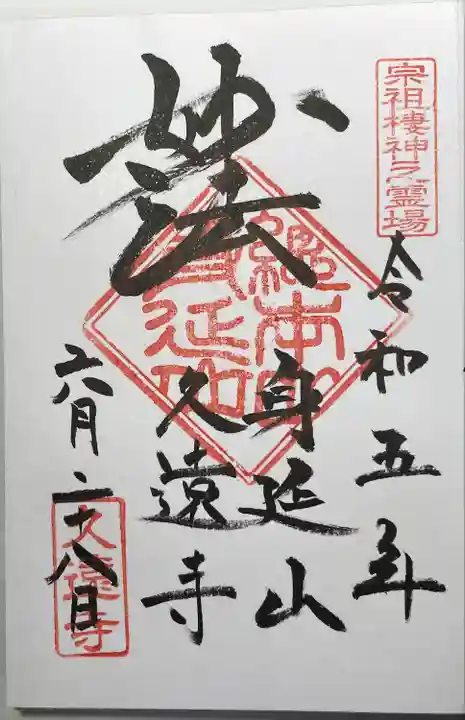 宗祖棲神之霊場
令和五年
妙法
總本山
身延山
身延山
久遠寺
六月二十八日
久遠寺